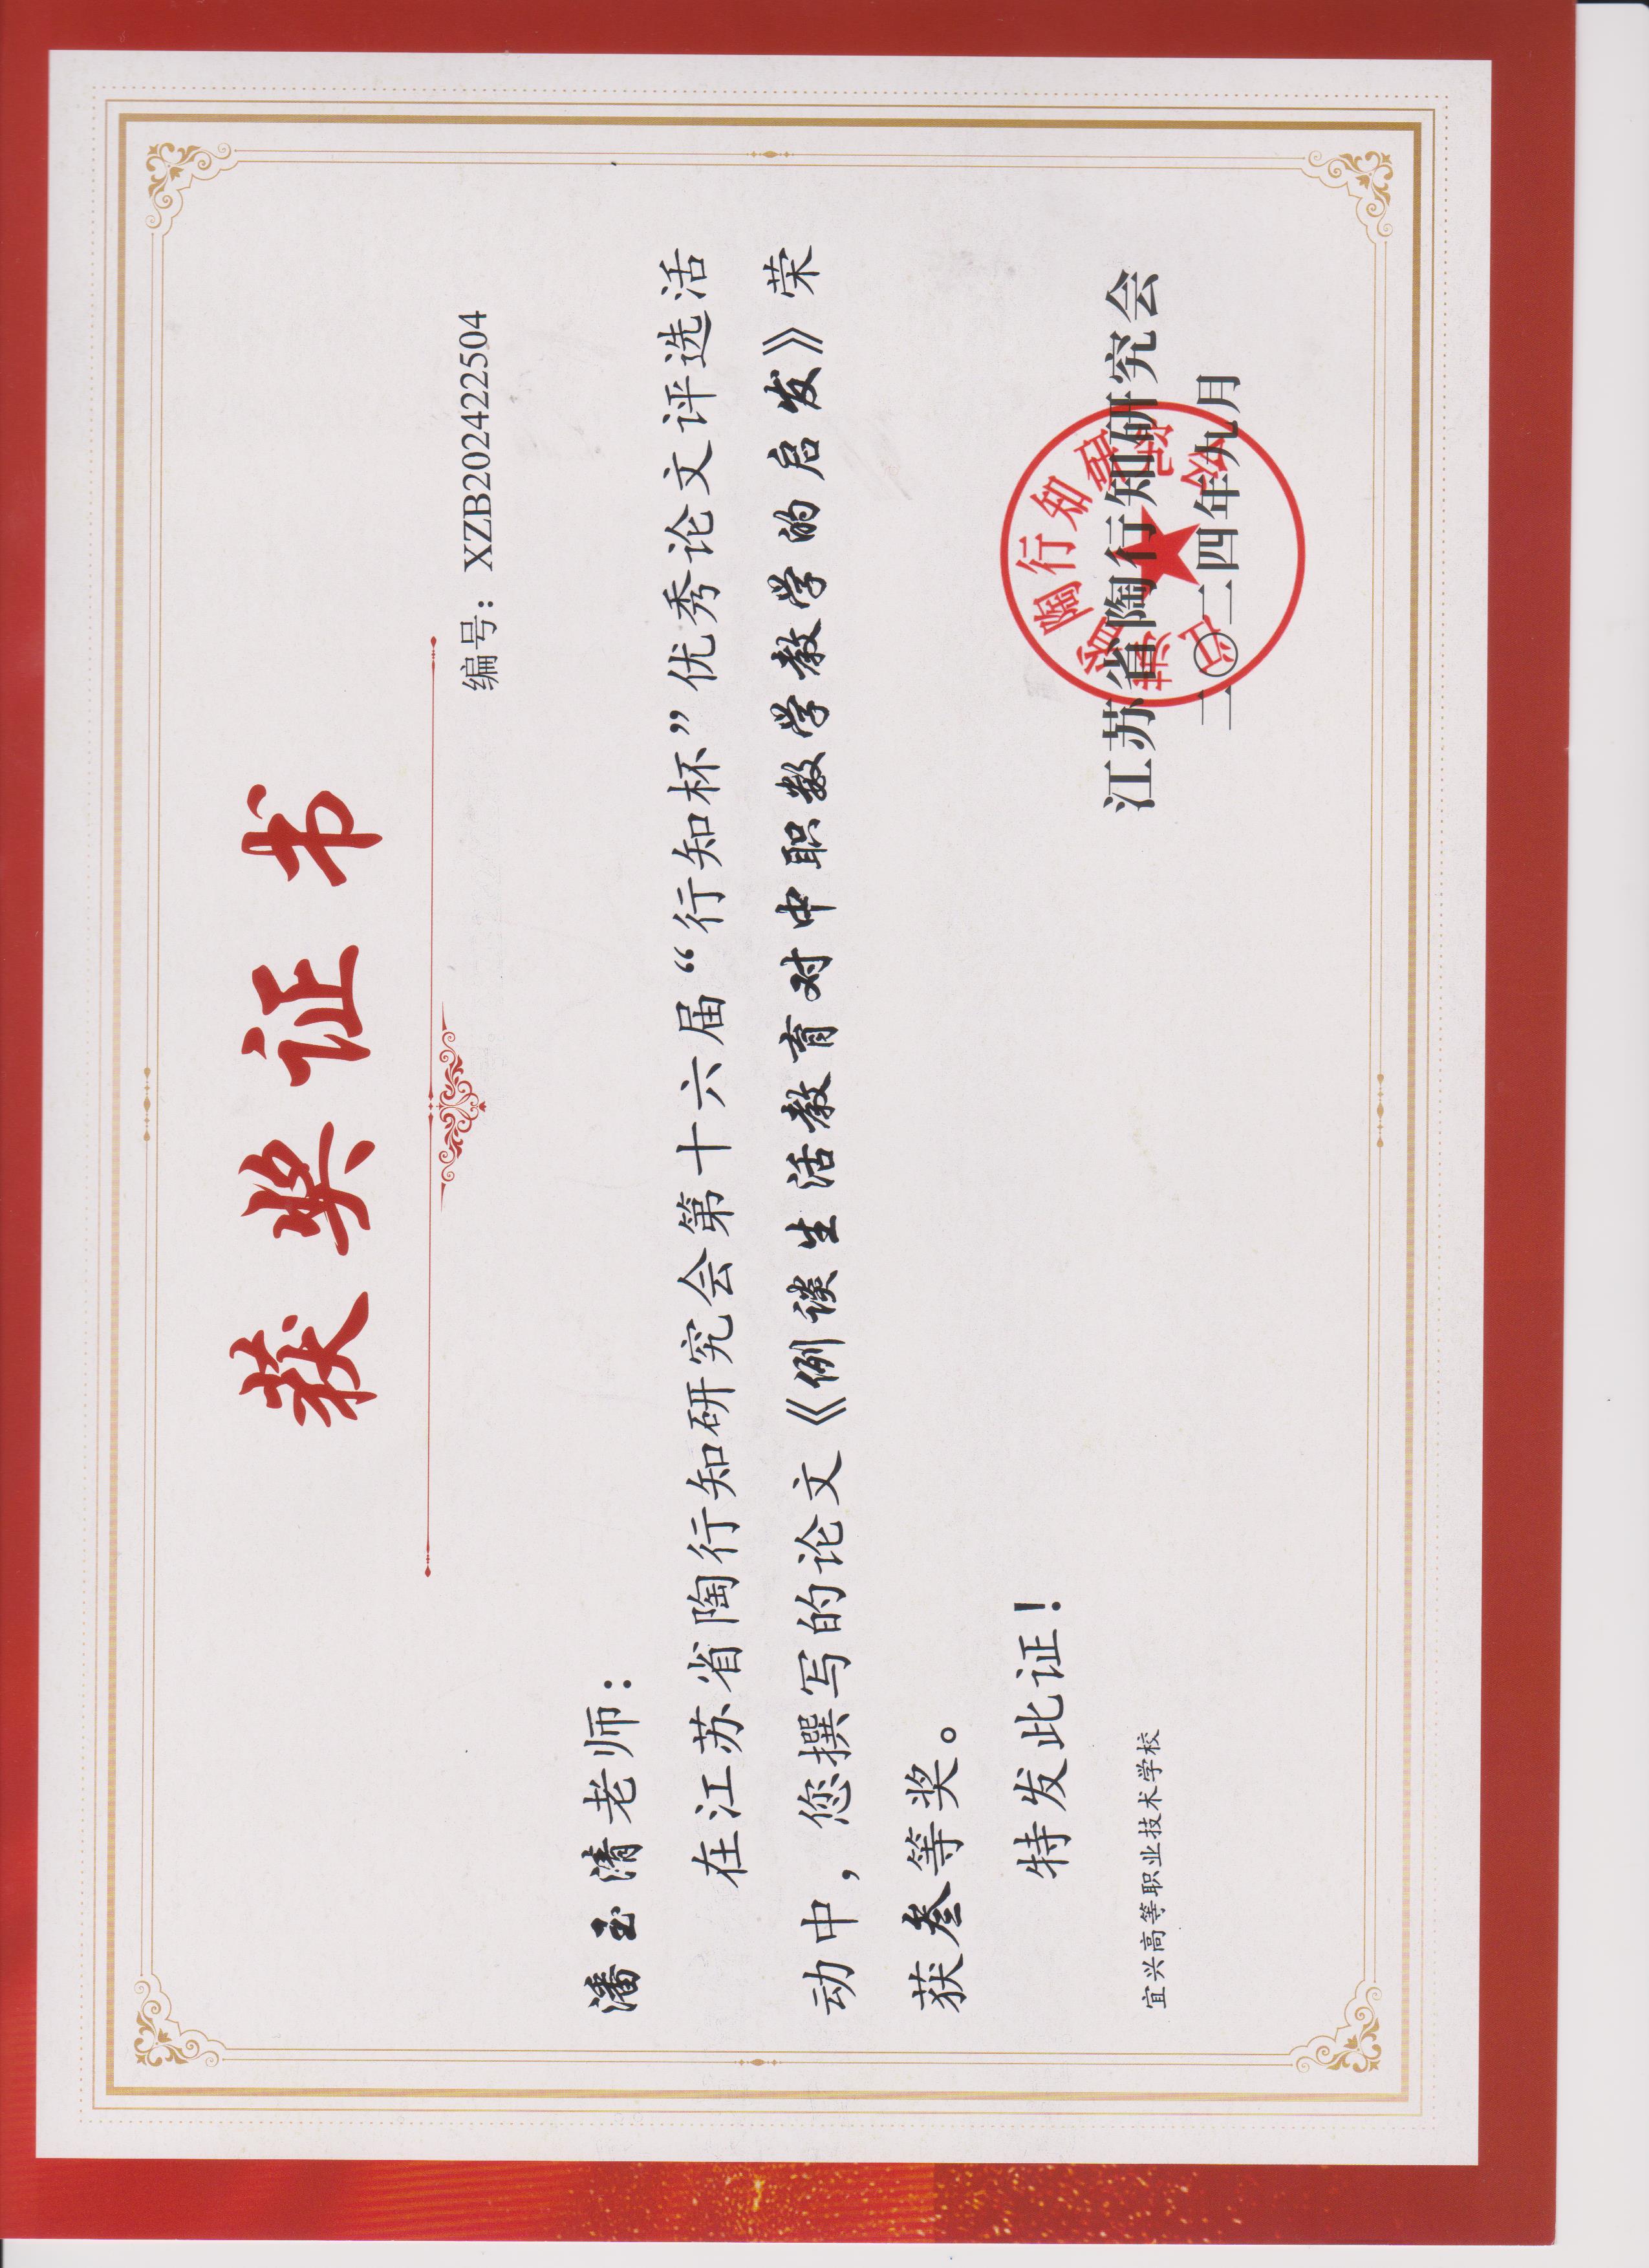 获奖证书
编号：XZB202422504
潘玉清老师：
在江苏省陶行知研究会第十六届“行知杯”优秀论文评选活
动中，您撰写的论文《例谈生活教育对中职数学教学的启发》荣
获叁等奖。
特发此证！
宜兴高等职业技术学校
江苏省陶行知研究会
二〇二四年九月
江苏省陶行知研究会